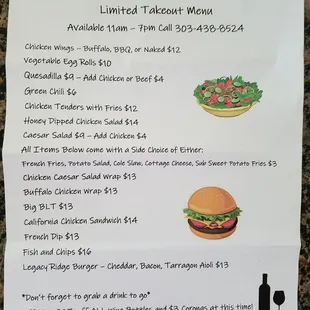 Limited Takeout Menu
Available 11am – 7pm Call 303-438-8524
Chicken Wings – Buffalo, BBQ, or Naked $12
Vegetable Egg Rolls $10
Quesadilla $9 – Add Chicken or Beef $4
Green Chili $6
Chicken Tenders with Fries $12
Honey Dipped Chicken Salad $14
Caesar Salad $9 – Add Chicken $4
All Items Below come with a Side Choice of Either:
French Fries, Potato Salad, Cole Slaw, Cottage Cheese, Sub Sweet Potato Fries $3
Chicken Caesar Salad Wrap $13
Buffalo Chicken Wrap $13
Big BLT $13
California Chicken Sandwich $14
French Dip $13
Fish and Chips $16
Legacy Ridge Burger – Cheddar, Bacon, Tarragon Aioli $13
*Don't forget to grab a drink to go*
ALL Wine Bottles and $3 Coronas at this time!